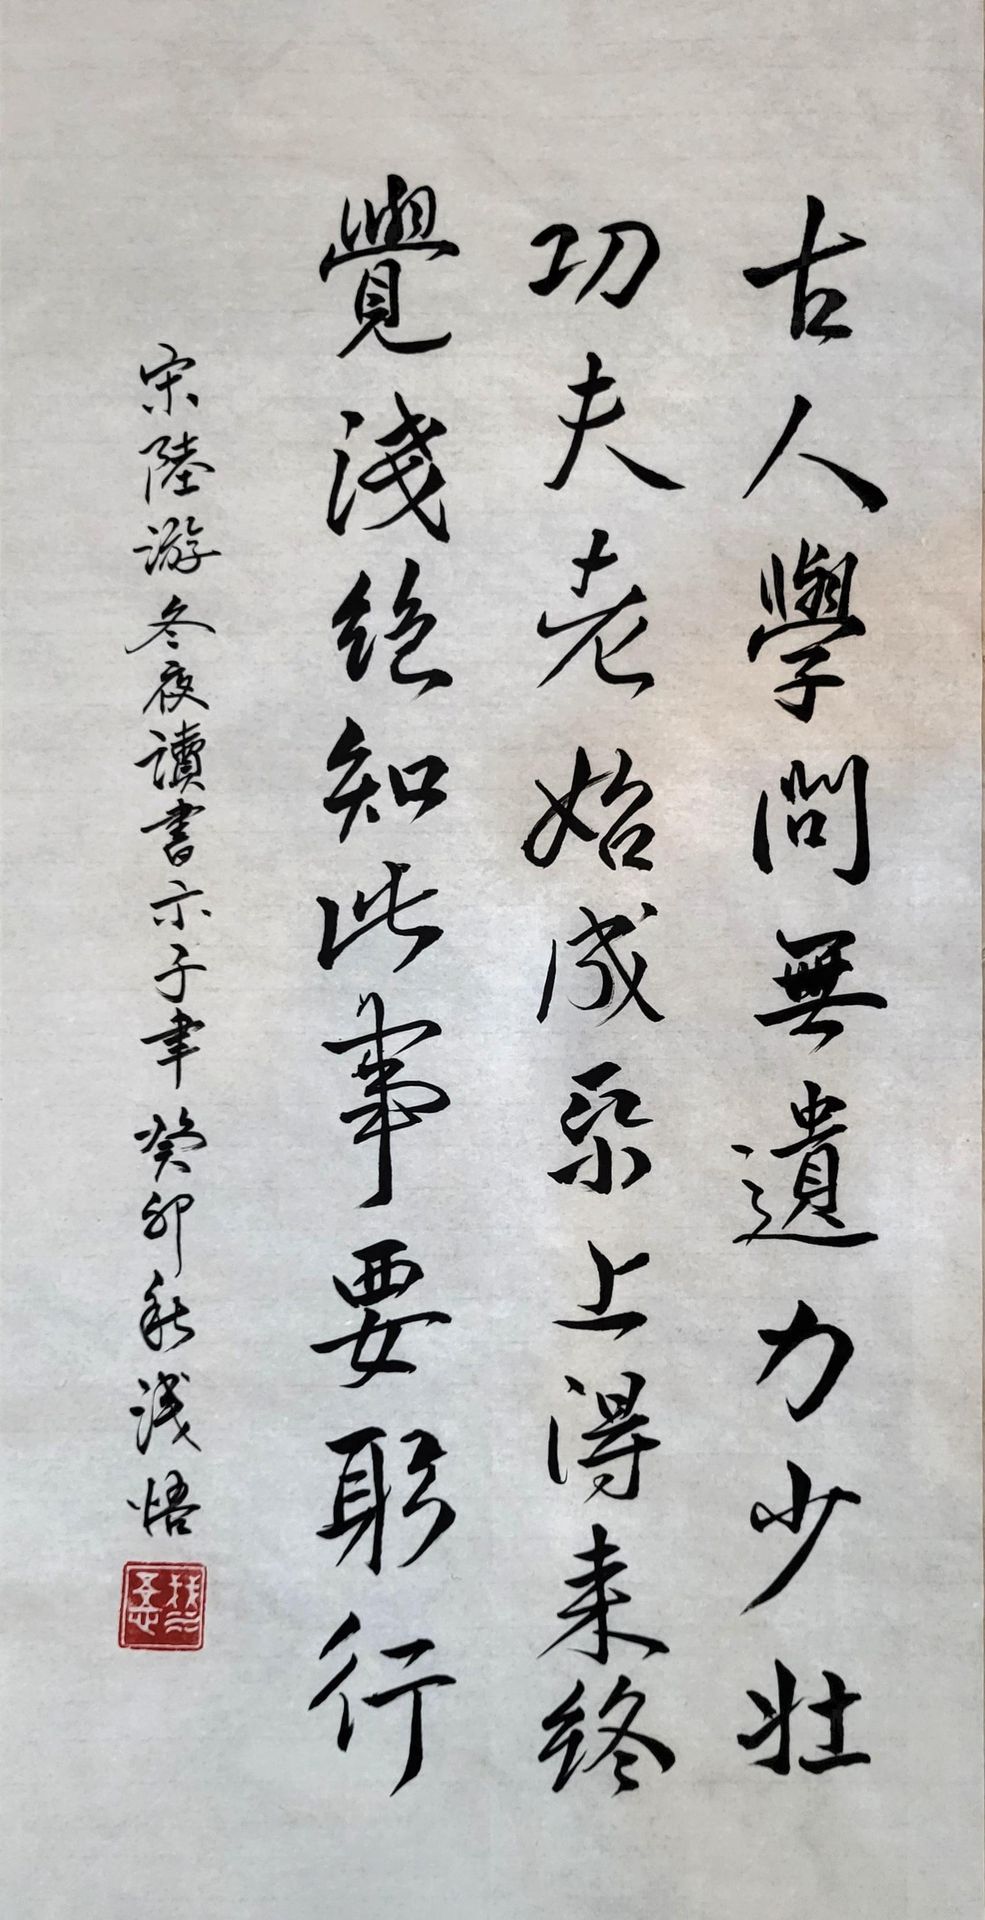 古人學問無遺力少壯
功夫老始成帋上得来終
覺淺絕知此事要躬行
宋陸游冬夜讀書示子聿癸卯秋淺悟